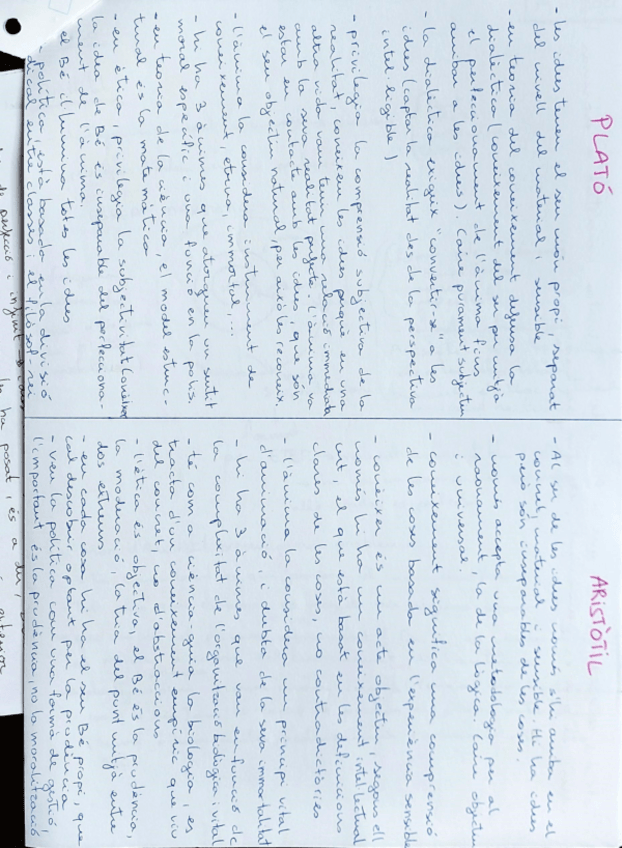 PLATÓ
- Les idees tenen el seu món propi, separat
del nivell del material i sensible
- en teoria del coneixement defensa la
dialèctica (coneixement del ser per mitjà
el perfeccionament de l'ànima fins
arribar a les idees). Caire purament subjectiu
- la dialèctica exigeix "convertir-se" a les
idees (captar la realitat des de la perspectiva
intel·ligible)
- privilegia la comprensió subjectiva de la
realitat, coneixem les idees perquè en una
altra vida vam tenir una relació immediata
amb la seva realitat perfecta. L'ànima va
estar en contacte amb les idees, que són
el seu objectiu natural, per això les reconeix.
- l'ànima la considera instrument de
coneixement, eterna, immortal, ...
- hi ha 3 ànimes que atorguen un sentit
moral específic i una funció en la polis
- en teoria de la ciència, el model estruc-
tural és la matemàtica
- en ètica, privilegia la subjectivitat
la idea de Bé és inseparable del perfecciona-
ment de l'ànima.
el Bé il·lumina totes les idees
política està basada en la divisió
entre classes i el filòsof rei
ARISTÒTIL
- Al ser de les idees només s'hi arriba en el
concret, material i sensible. Hi ha idees
però són inseparables de les coses.
- només accepta una metodologia per al
raonament, la de la lògica. Caire objectiu
i universal.
- coneixement significa una comprensió
de les coses basada en l'experiència sensible
- conèixer és un acte objectiu, segons ell
només hi ha un coneixement intel·lectual
, el que està basat en les definicions
clares de les coses, no contradictòries
- l'ànima la considera un principi vital
d'animació, i dubta de la seva immortalitat
- hi ha 3 ànimes que van en funció de
la complexitat de l'organització biològica i vital
- té com a ciència guia la biologia, es
tracta d'un coneixement empíric que viu
del concret no d'abstraccions.
- l'ètica és objectiva, el Bé és la prudència,
la moderació, la tria del punt mitjà entre
dos extrems
- en cada cosa hi ha el seu Bé propi, que
cal descobrir optant per la prudència
- veu la política com una forma de gestió
l'important és la prudència, no la moralització